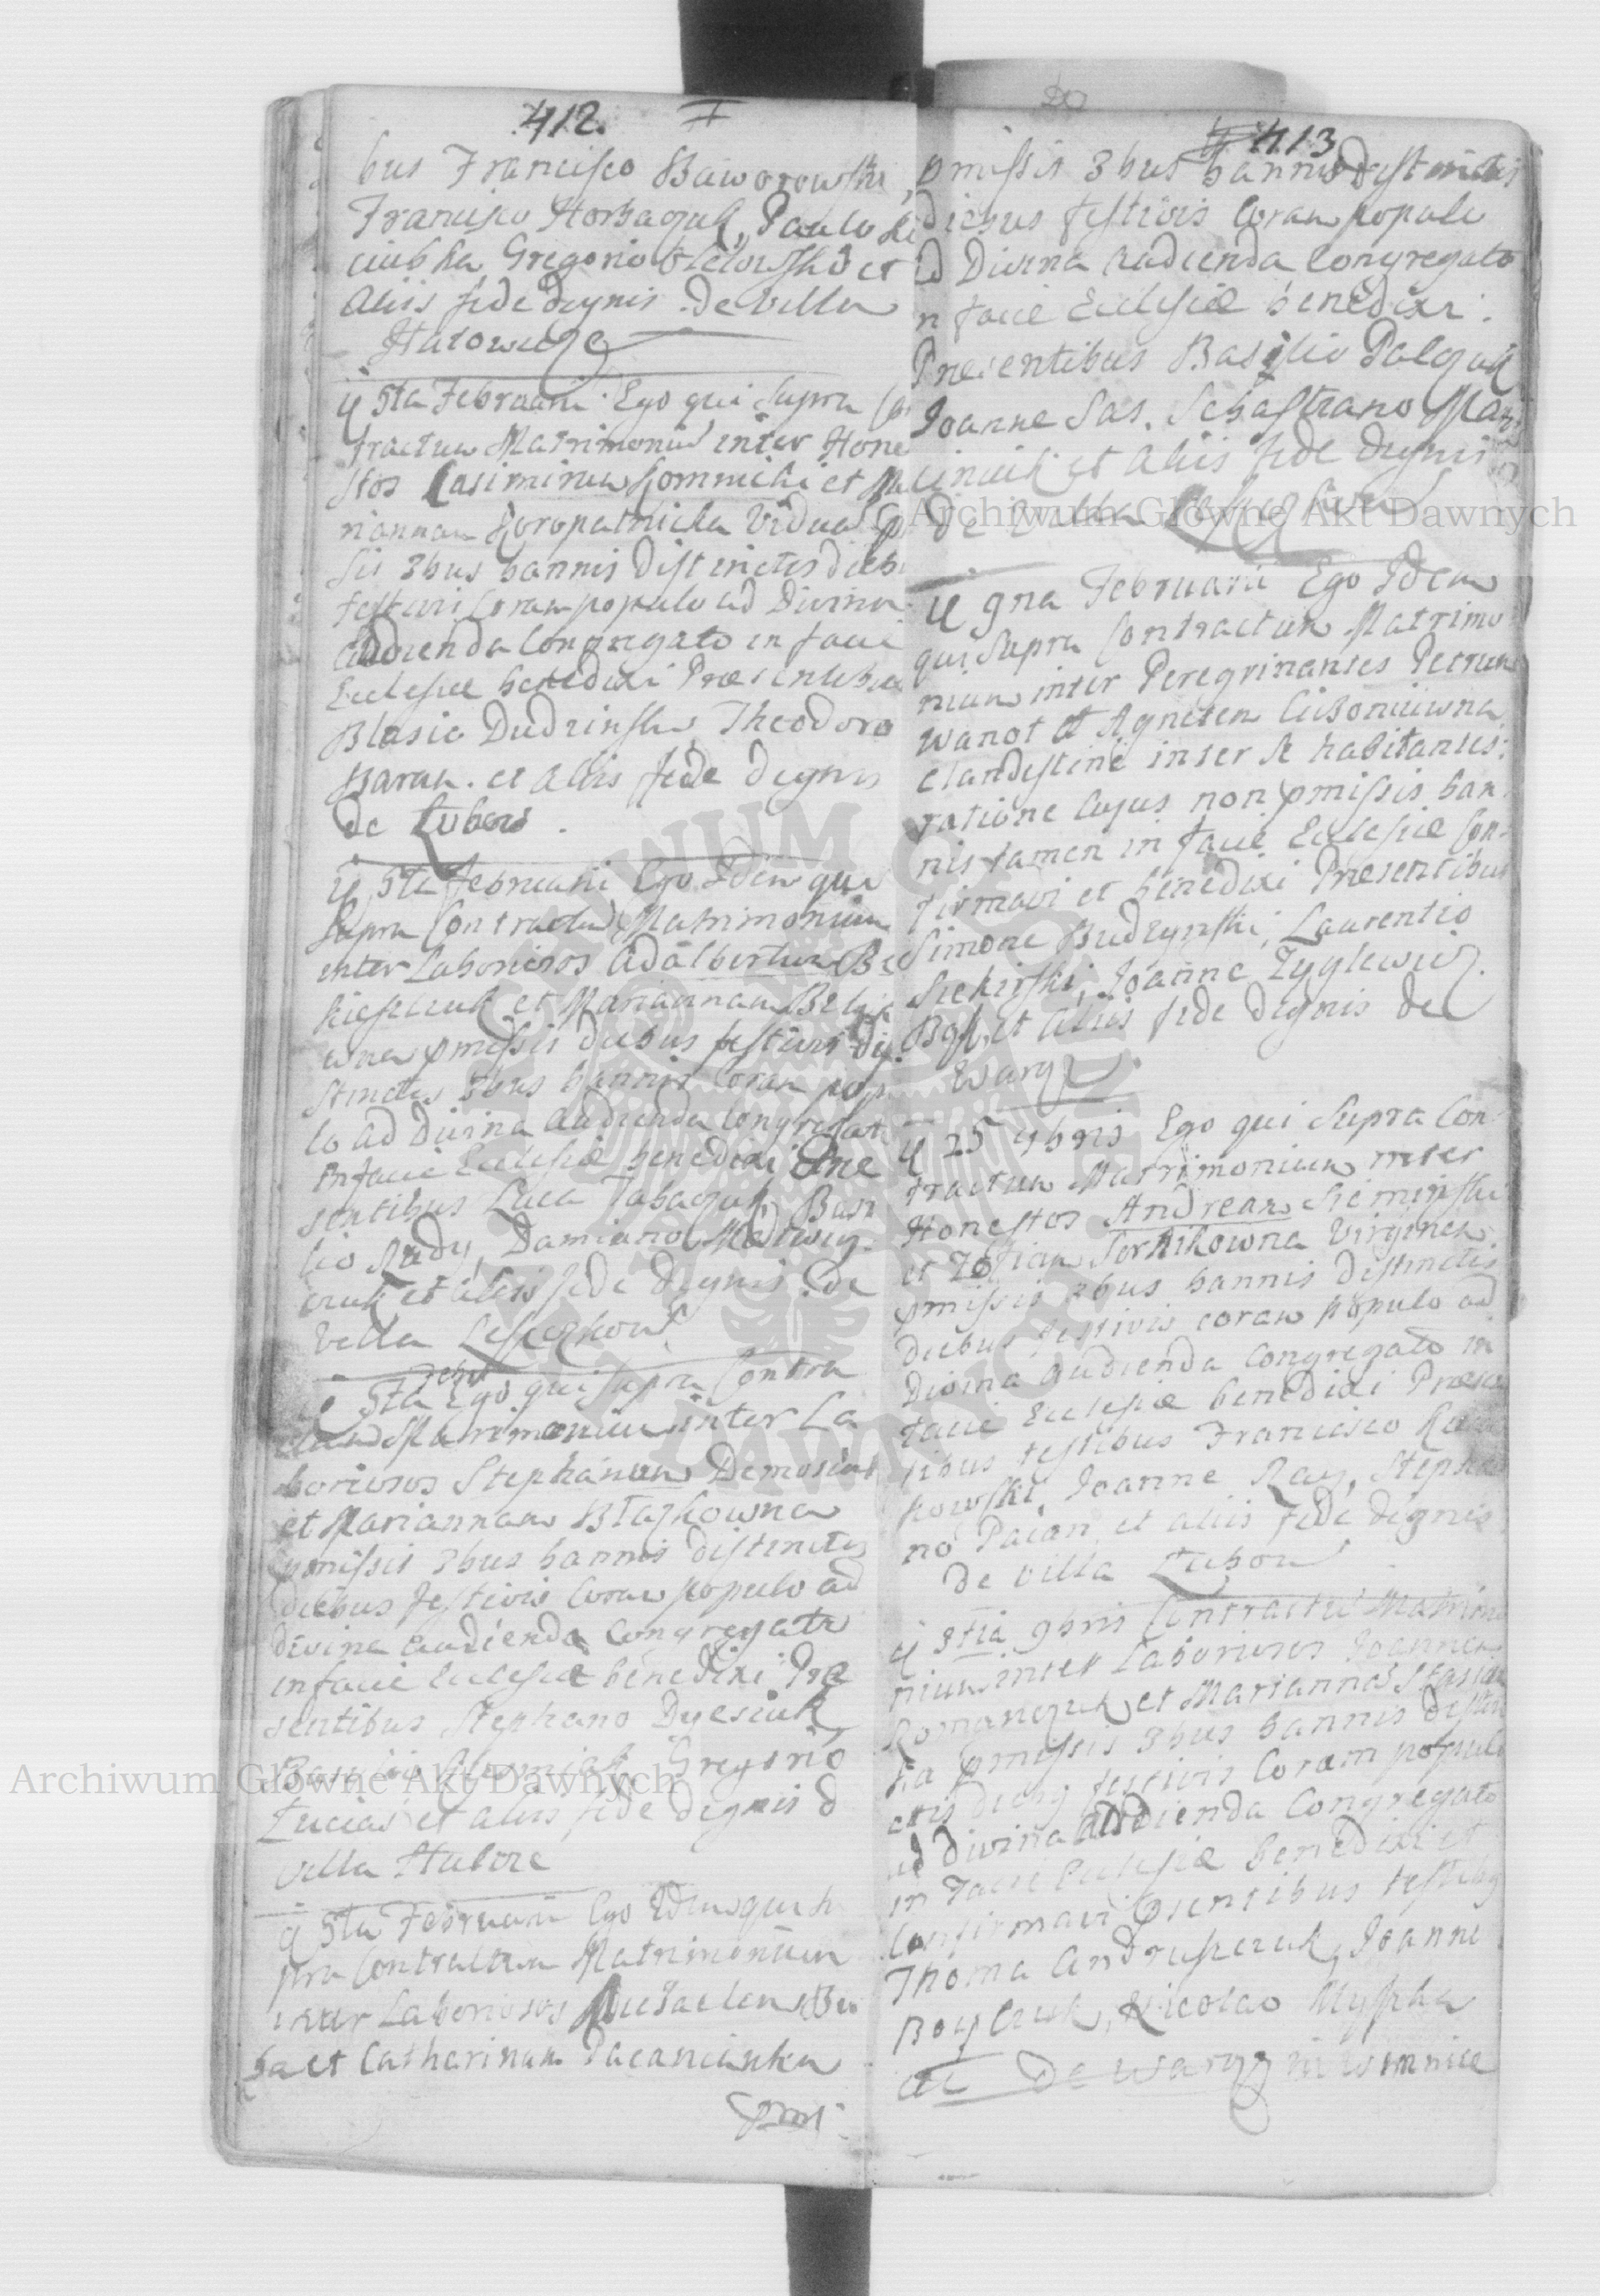 412.
bus Francisco Baworowski,
Francisco Horbaczuk, Paulo
Gregorio et
aliis fide dignis de villa
Hulowicze
5ta Februarii Ego qui supra Con
tractum Matrimonium inter Hone
stos Casimirum Komnicki et Ma
riannam Koropatnicka Viduam
sis 3bus bannis Distinctis dieb
festivis Coram populo ad Divina
audienda Congregato in facie
Ecclesiæ benedixi Præsentibus
Blasio Dudzinski, Theodoro
Baran. et aliis fide dignis
de Lubow.
5ta Februarii Ego Idem qui
supra Contractum Matrimonium
inter Laboriosos Adalbertum
et Mariannam
pmissis diebus festivis Di
stinctis 3bus bannis Coram popu
lo ad Divina audienda Congregat
in facie Ecclesiæ benedixi Præ
sentibus Luca Tabaczuk, Basi
lio Rudy, Damiano
czuk et aliis fide dignis de
Villa Leszczkow
5ta Ego qui supra Contra
ctum Matrimonium inter La
boriosos Stephanum
et Mariannam Błaszkowna
pmissis 3bus bannis distinctis
diebus festivis Coram populo ad
divina audienda Congregato
in facie Ecclesiæ benedixi Præ
sentibus Stephano Dyesiuk
Basilio Gregorio
Lucias et aliis fide dignis d
villa Hulcze
5ta Februarii Ego Idem qui su
pra Contractum Matrimonium
inter Laboriosos
ba et Catharinam Pacanianka
pmi
413
pmissis 3bus bannis Distinctis
diebus festivis Coram populo
ad Divina audienda Congregato
in facie Ecclesiæ benedixi.
Præsentibus Basilio Palczuk
Joanne Sas. Sebastiano
et aliis fide dignis
de Villa
9na Februarii Ego Idem
qui supra Contractum Matrimo
nium inter Peregrinantes Petrum
Wanot et Agnetem
clandestine inter se habitantes;
ratione cujus non pmissis ban
nis tamen in facie Ecclesiæ Con
firmavi et benedixi Præsentibus
Simone Budzynski, Laurentio
Siekirski, Joanne Zyglewicz
et aliis fide dignis de
Waręz.
25 9bris Ego qui supra Con
tractum Matrimonium inter
Honestos Andream Sieminski
et Zofiam Virginem
pmissis 3bus bannis distinctis
diebus festivis coram populo ad
Divina audienda Congregato in
facie Ecclesiæ benedixi Præsen
tibus testibus Francisco
kowski, Joanne Ray, Stepha
no Paian, et aliis fide dignis
de villa Lubow
3tia 9bris Contractu Matrimo
nium inter Laboriosos Joannem
Romanczuk et Mariannas Stasian
ka pmissis 3bus bannis distin
ctis dieb festivis Coram populo
ad divina audienda Congregato
in facie Ecclesiæ Benedixi et
Confirmavi psentibus testib
Thoma Andruszczuk, Joanne
Boyczuk, Nicolao Mysska
de Waręz
Archiwum Główne Akt Dawnych
Archiwum Główne Akt Dawnych
ARCHIWUM GŁÓWNE AKT DAWNYCH